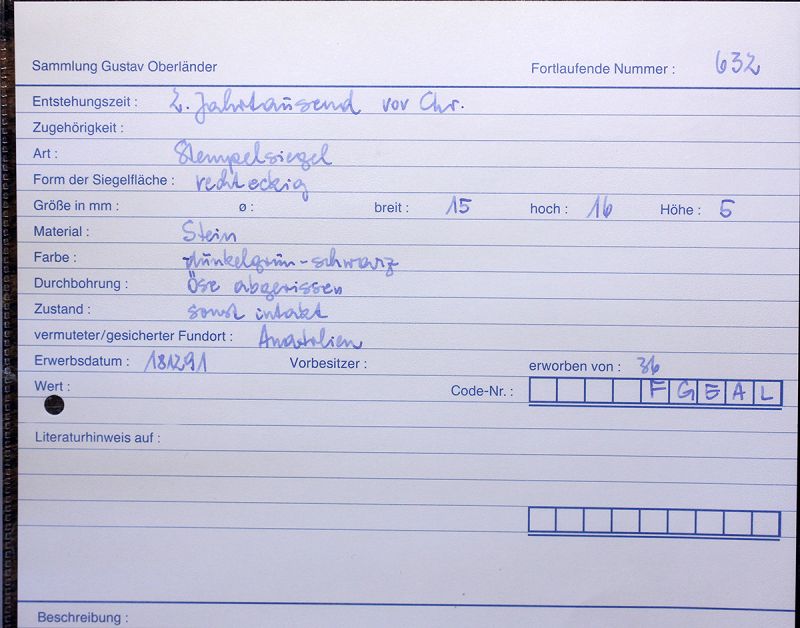 Sammlung Gustav Oberländer Fortlaufende Nummer : 632
Entstehungszeit : 2. Jahrtausend vor Chr.
Zugehörigkeit :
Art : Stempelsiegel
Form der Siegelfläche : rechteckig
Größe in mm : ø : breit : 15 hoch : 16 Höhe : 5
Material : Stein
Farbe : dunkelgrün-schwarz
Durchbohrung : Öse abgerissen
Zustand : sonst intakt
vermuteter/gesicherter Fundort : Anatolien
Erwerbsdatum : 181291 Vorbesitzer : erworben von : 36
Wert : Code-Nr. : FGEAL
Literaturhinweis auf :
Beschreibung :